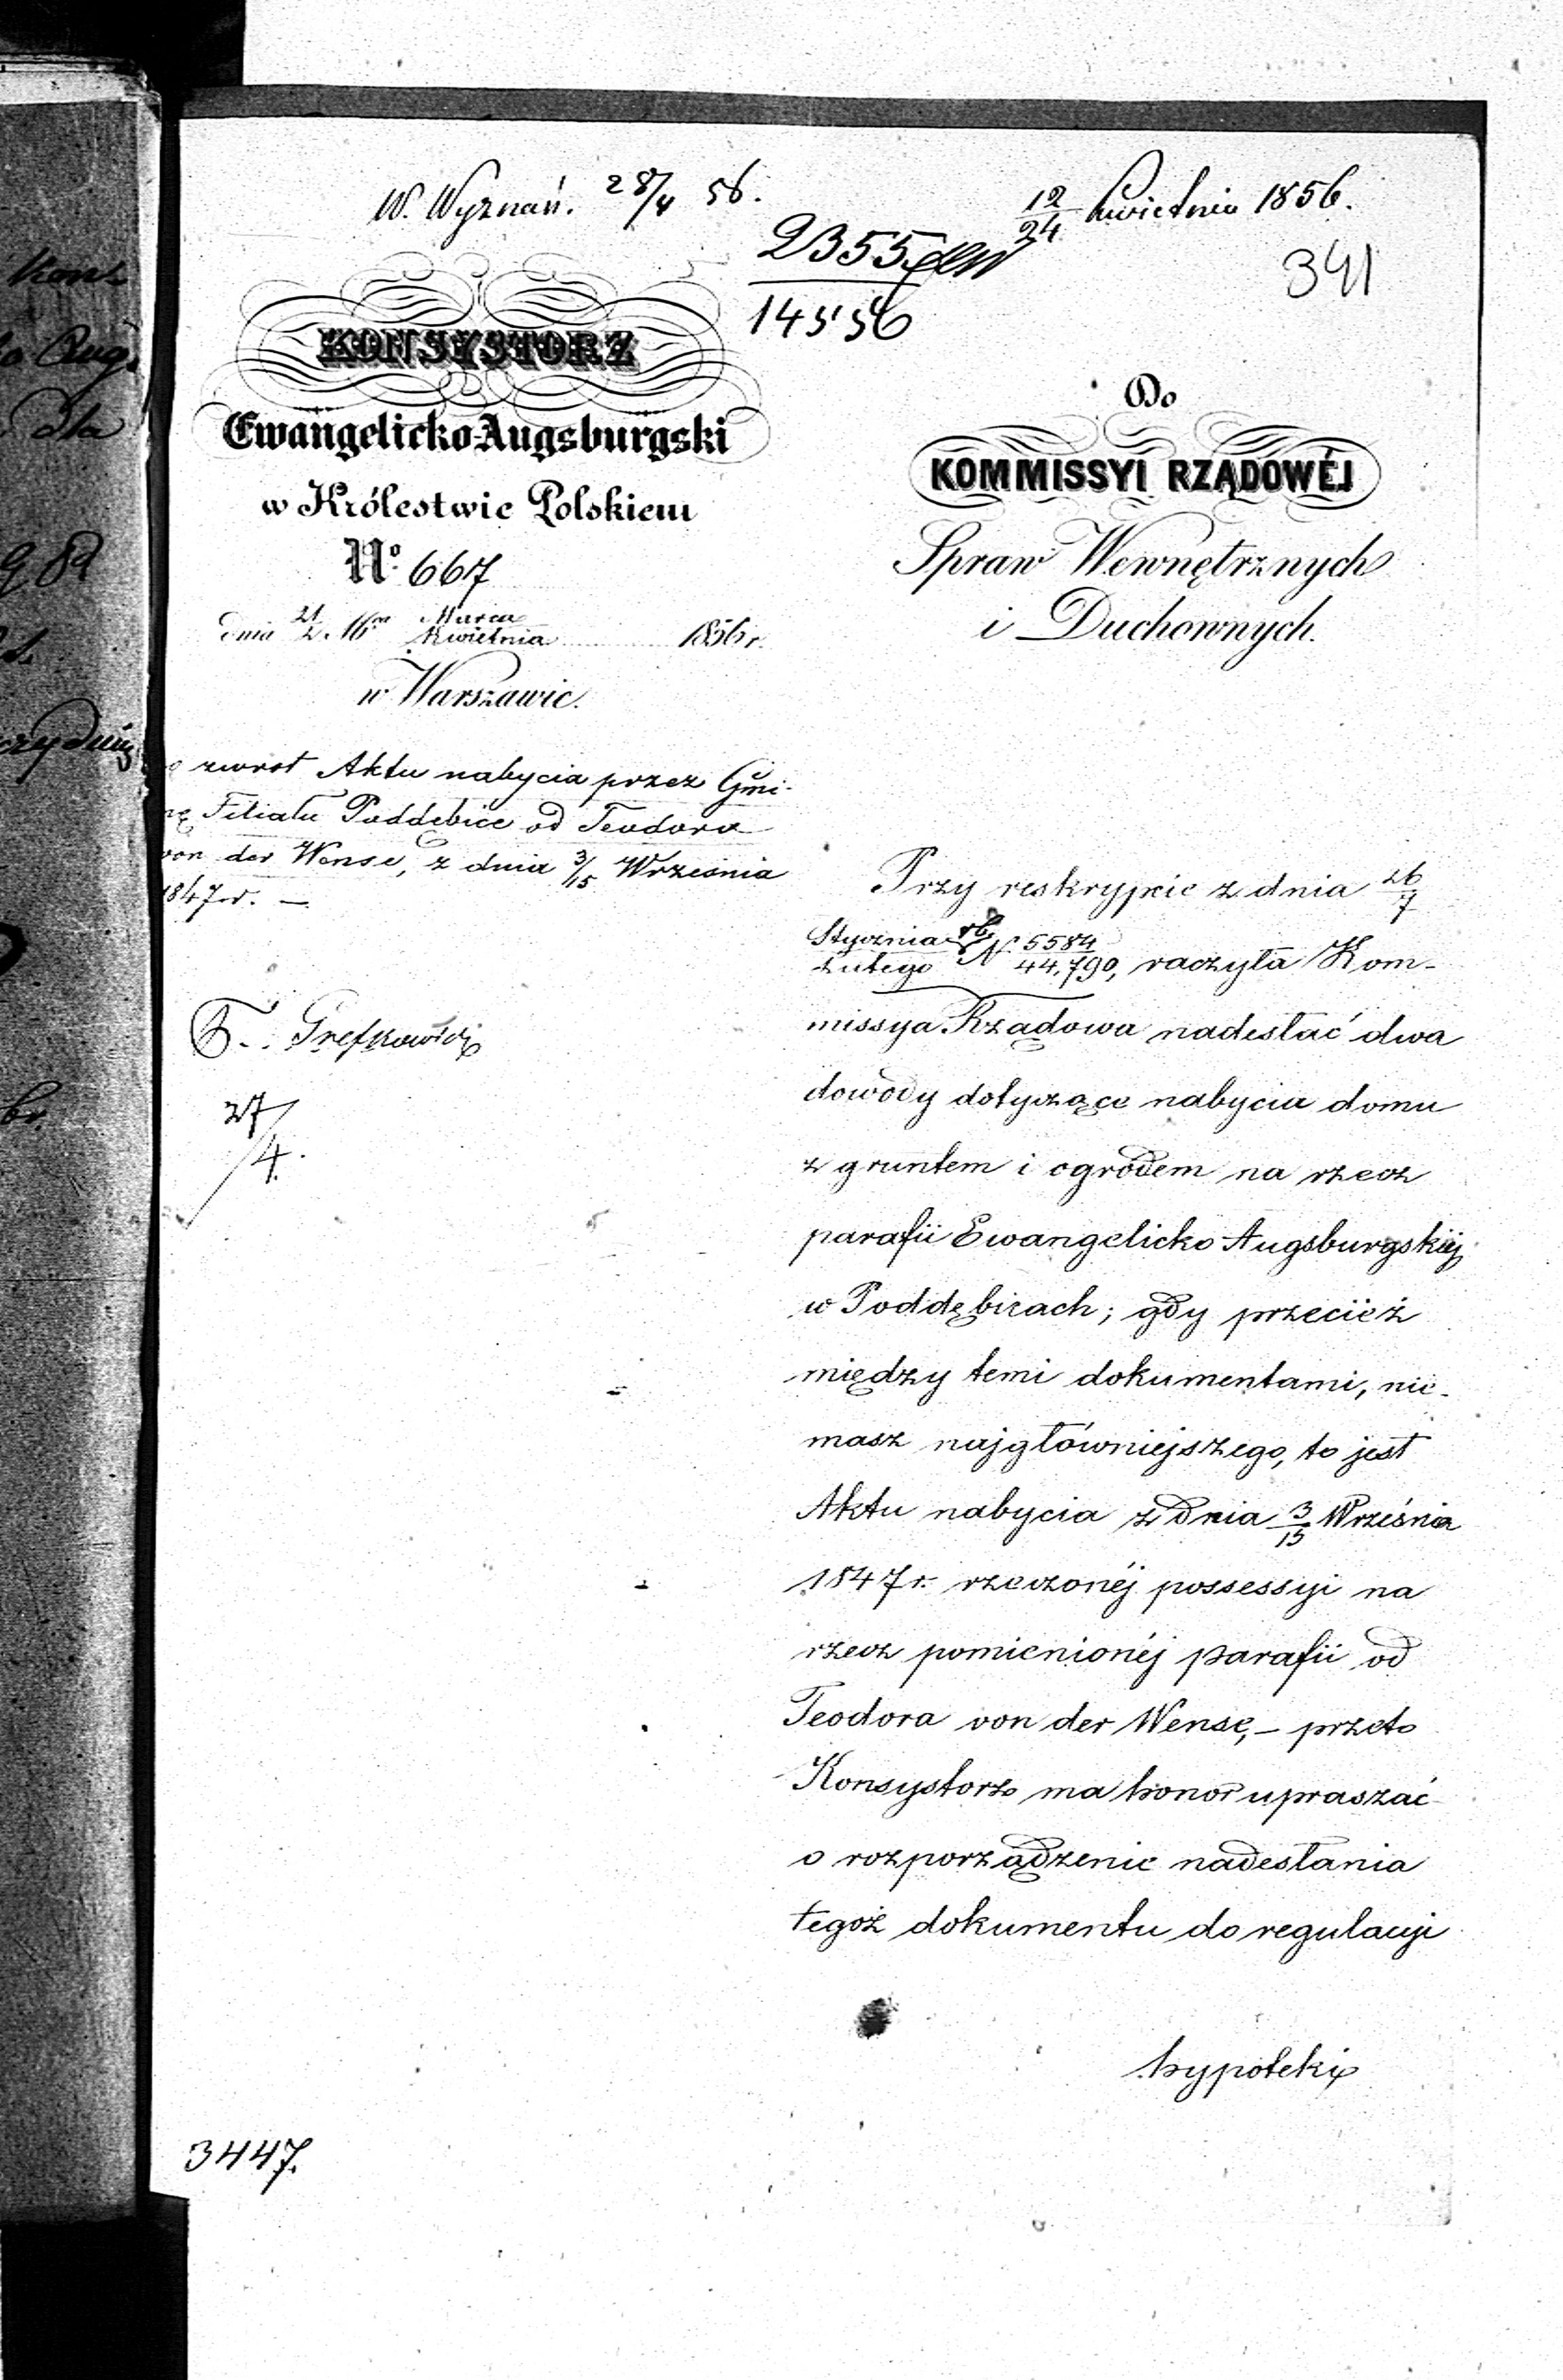 W. Wyznań. 28/4 56.
12/24 Kwietnia 1856.
2355
14556
341
KONSYSTORZ
Ewangelicko-Augsburgski
w Królestwie Polskiem
No. 667
dnia 21/2 Marca/Kwietnia 1856 r.
w Warszawie.
o zwrot Aktu nabycia przez Gmi-
nę Filiału Poddębice od Teodora
von der Wense, z dnia 3/15 Września
1847 r. —
27/4.
3447.
Do
KOMMISSYI RZĄDOWÉJ
Spraw Wewnętrznych
i Duchownych.
Przy reskrypcie z dnia 26/7
Stycznia/Lutego rb. N. 5584/44,790, raczyła Kom-
missya Rządowa nadesłać dwa
dowody dotyczące nabycia domu
z gruntem i ogrodem na rzecz
parafii Ewangelicko Augsburgskiéj
w Poddębicach; gdy przecież
między temi dokumentami, nie-
masz najgłówniejszego, to jest
Aktu nabycia z dnia 3/15 Września
1847 r. rzeczonéj possessyi na
rzecz pomienionéj parafii od
Teodora von der Wense, – przeto
Konsystorz ma honor upraszać
o rozporządzenie nadesłania
tegoż dokumentu do regulacyi
hypoteki